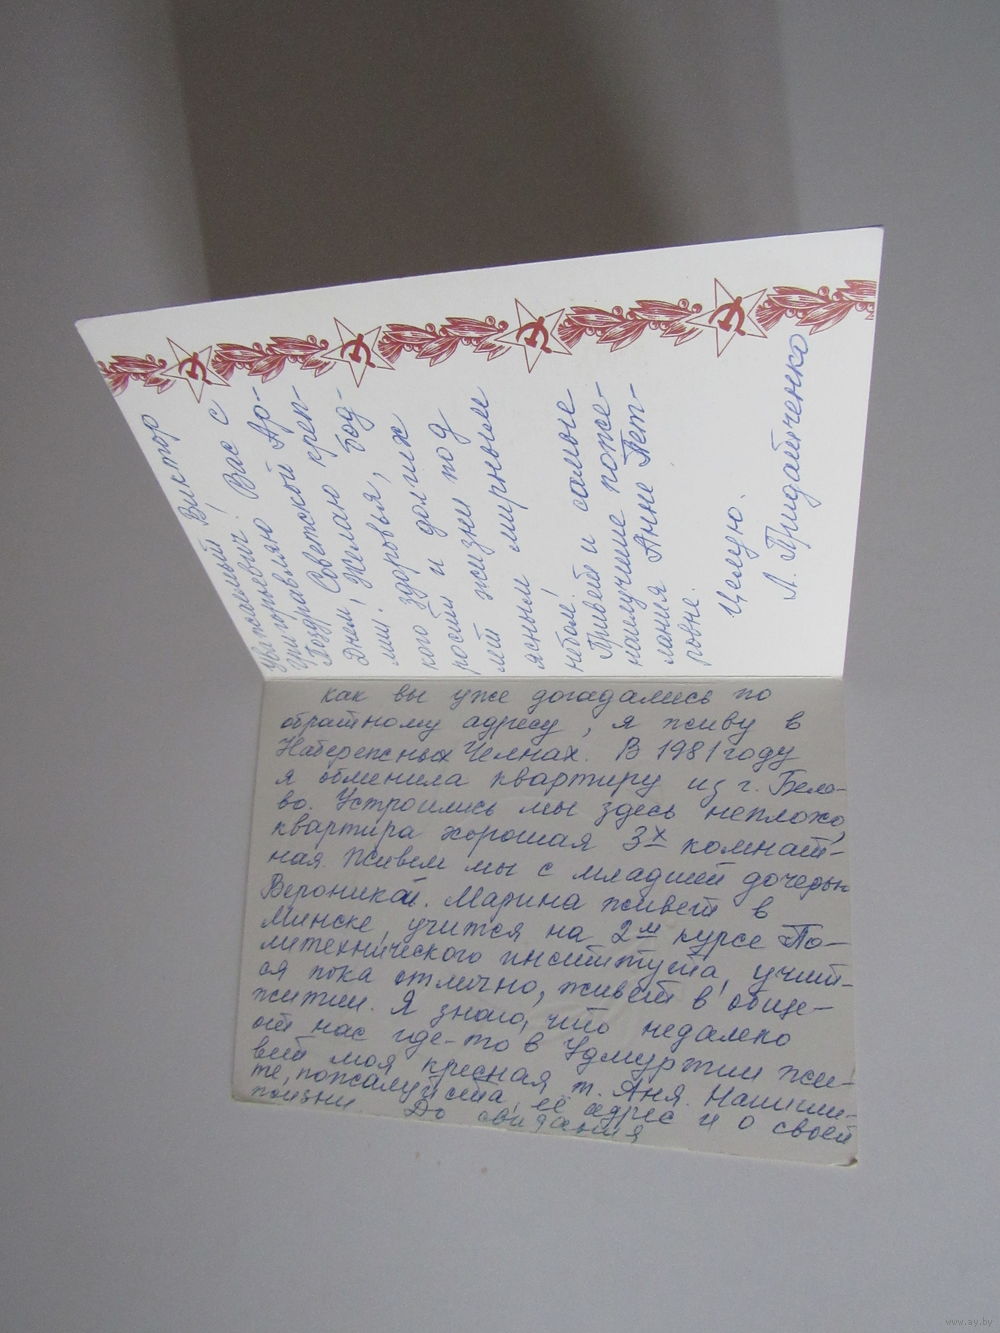 Уважаемый Виктор
Григорьевич! Вас с
Поздравляю Ар-
Днем Советской креп-
мии, Желаю бод-
кого здоровья,
рости и долгих
лет жизни под
ясным мирным
небом!
Привет и самые
наилучшие поже-
лания Анне Пет-
ровне.
Целую.
Л. Придайченко
как вы уже догадались по
обратному адресу, я живу в
Набережных Челнах. В 1981 году
я обменила квартиру из г. Бело-
во. Устроились мы здесь неплохо,
квартира хорошая 3х комнат-
ная. Живем мы с младшей дочерью
Вероникой. Марина живет в
Минске, учится на 2м курсе По-
литехнического института, учит-
ся пока отлично, живет в обще-
житии. Я знаю, что недалеко
от нас где-то в Удмуртии жи-
вет моя кресная т. Аня. Напиши-
те, пожалуйста, её адрес и о своей
жизни До свидания
www.ay.by